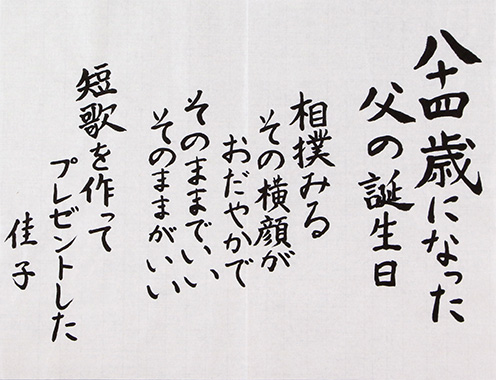 八十四歳になった
父の誕生日
相撲みる
その横顔が
おだやかで
そのままでいい
そのままがいい
短歌を作って
プレゼントした
佳子